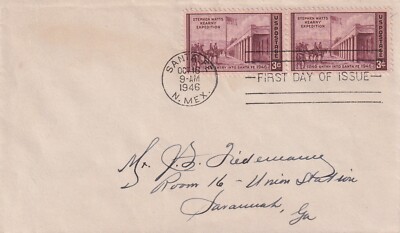 STEPHEN WATTS
KEARNY
EXPEDITION
U.S. POSTAGE
ENTRY INTO SANTA FE 1846
3¢
STEPHEN WATTS
KEARNY
EXPEDITION
U.S. POSTAGE
ENTRY INTO SANTA FE 1846
3¢
SANTA FE
OCT 16
9-AM
1946
N. MEX.
FIRST DAY OF ISSUE
Mr. J. B. Tiedemann
Room 16 - Union Station
Savannah,
Ga